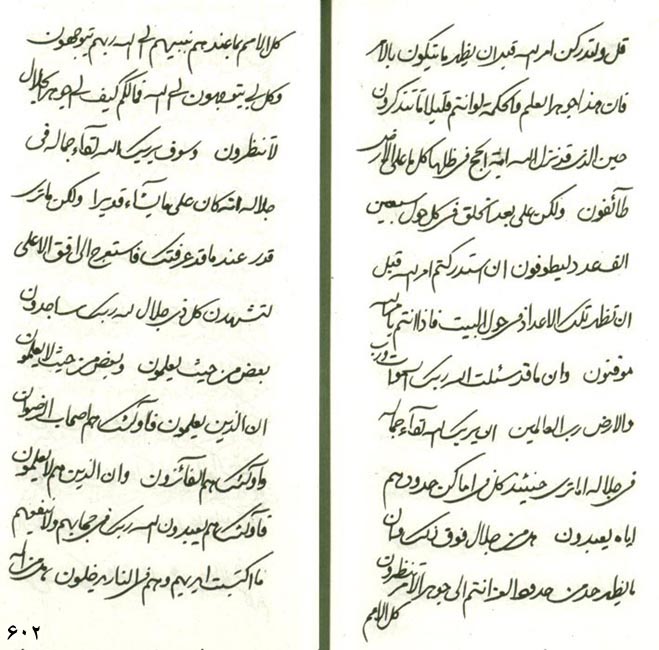 قل ولتدركن امر الله قبل ان يظهر ما تتكون بالامر
فان هذا جوهر العلم والحكمة لو انتم قليلا ما تتذكرون
حين الذي قد نزل الله اية الحج في ظلها كل ما على الارض
طائفون ولكن على بعد الخلق في كل حول سبعين
الف عدد ليطوفون ان استدركتم امر الله قبل
ان تظهر تلك الاعداد في حول البيت فاذا انتم بالله
موقنون وان ما قد سئلت الله ربك رب السموات ورب
والارض رب العالمين ان يريك الله لقاء جماله
في جلاله اما ترى حينئذ كل في اماكن حدودهم
اياه يعبدون هل من جلال فوق ذلك وان
ما يظهر حد من حدود الله انتم الى جوهر الامر تنظرون
كل الامم
كل الامم بما عندهم نبيهم الى الله ربهم يتوجهون
وكل لي يتوجهون الى الله فما لكم كيف الى جوهر الجلال
لا تنظرون وسوف يريك الله لقاء جماله في
جلاله انه كان على ما يشاء قديرا ولكن ما ترى
قدر عند ما قد عرفتك فاستعرج الى افق الاعلى
لتشهدن كل في جلال الله ربك ساجدون
بعض من حيث يعلمون وبعض من حيث لا يعلمون
ان الذين يعلمون فاولئك هم اصحاب الرضوان
واولئك هم الفائزون وان الذين هم لا يعلمون
فاولئك هم يعبدون الله ربك في حجابهم ولا ينفعهم
ما اكتسبت ايديهم وهم في النار يدخلون هل من اله
۶۰۲